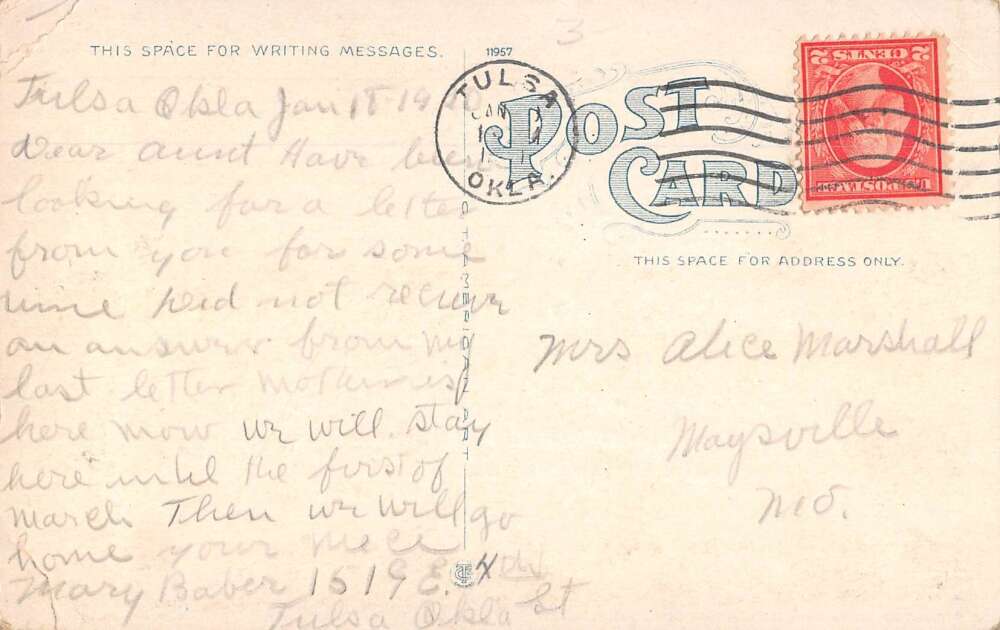 THIS SPACE FOR WRITING MESSAGES.
11957
3
Tulsa Okla Jan 18 19
Dear aunt Have been
looking for a letter
from you for some
time Did not recieve
an answer from my
last letter Mother is
here now we will stay
here until the first of
march Then we will go
home your niece
Mary Baber 1519 E. 4th St
Tulsa Okla
TULSA
JAN
OKLA.
POST
CARD
THIS SPACE FOR ADDRESS ONLY.
Mrs Alice Marshall
Maysville
Mo.
C.T. AMERICAN ART
CT
U.S. POSTAGE
2 CENTS 2